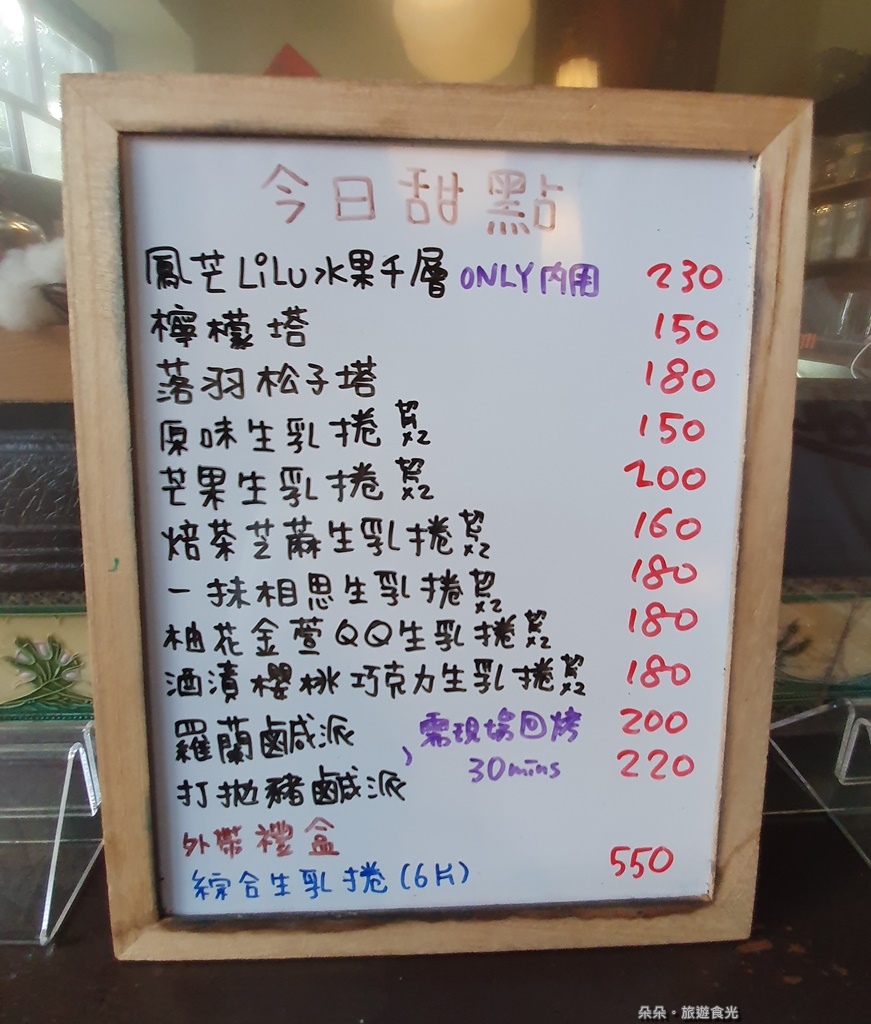 今日甜點
鳳芒LiLu水果千層 ONLY內用 230
檸檬塔 150
落羽松子塔 180
原味生乳捲 貨x2 150
芒果生乳捲 貨x2 200
焙茶芝麻生乳捲 貨x2 160
一抹相思生乳捲 貨x2 180
柚花金萱QQ生乳捲 貨x2 180
酒漬櫻桃巧克力生乳捲 貨x2 180
羅蘭鹹派 需現場回烤 200
打拋豬鹹派 30mins 220
外帶禮盒
綜合生乳捲(6片) 550
朵朵。旅遊食光